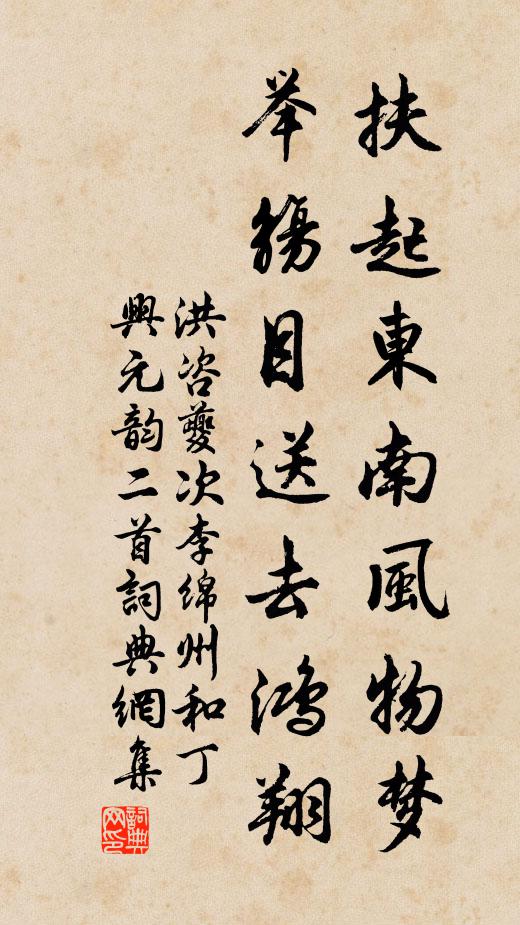 扶起東南風物梦
举觴目送去鴻翔
洪咨夔次李绵州和丁
興元韵二首詞典網集
詞典
网印